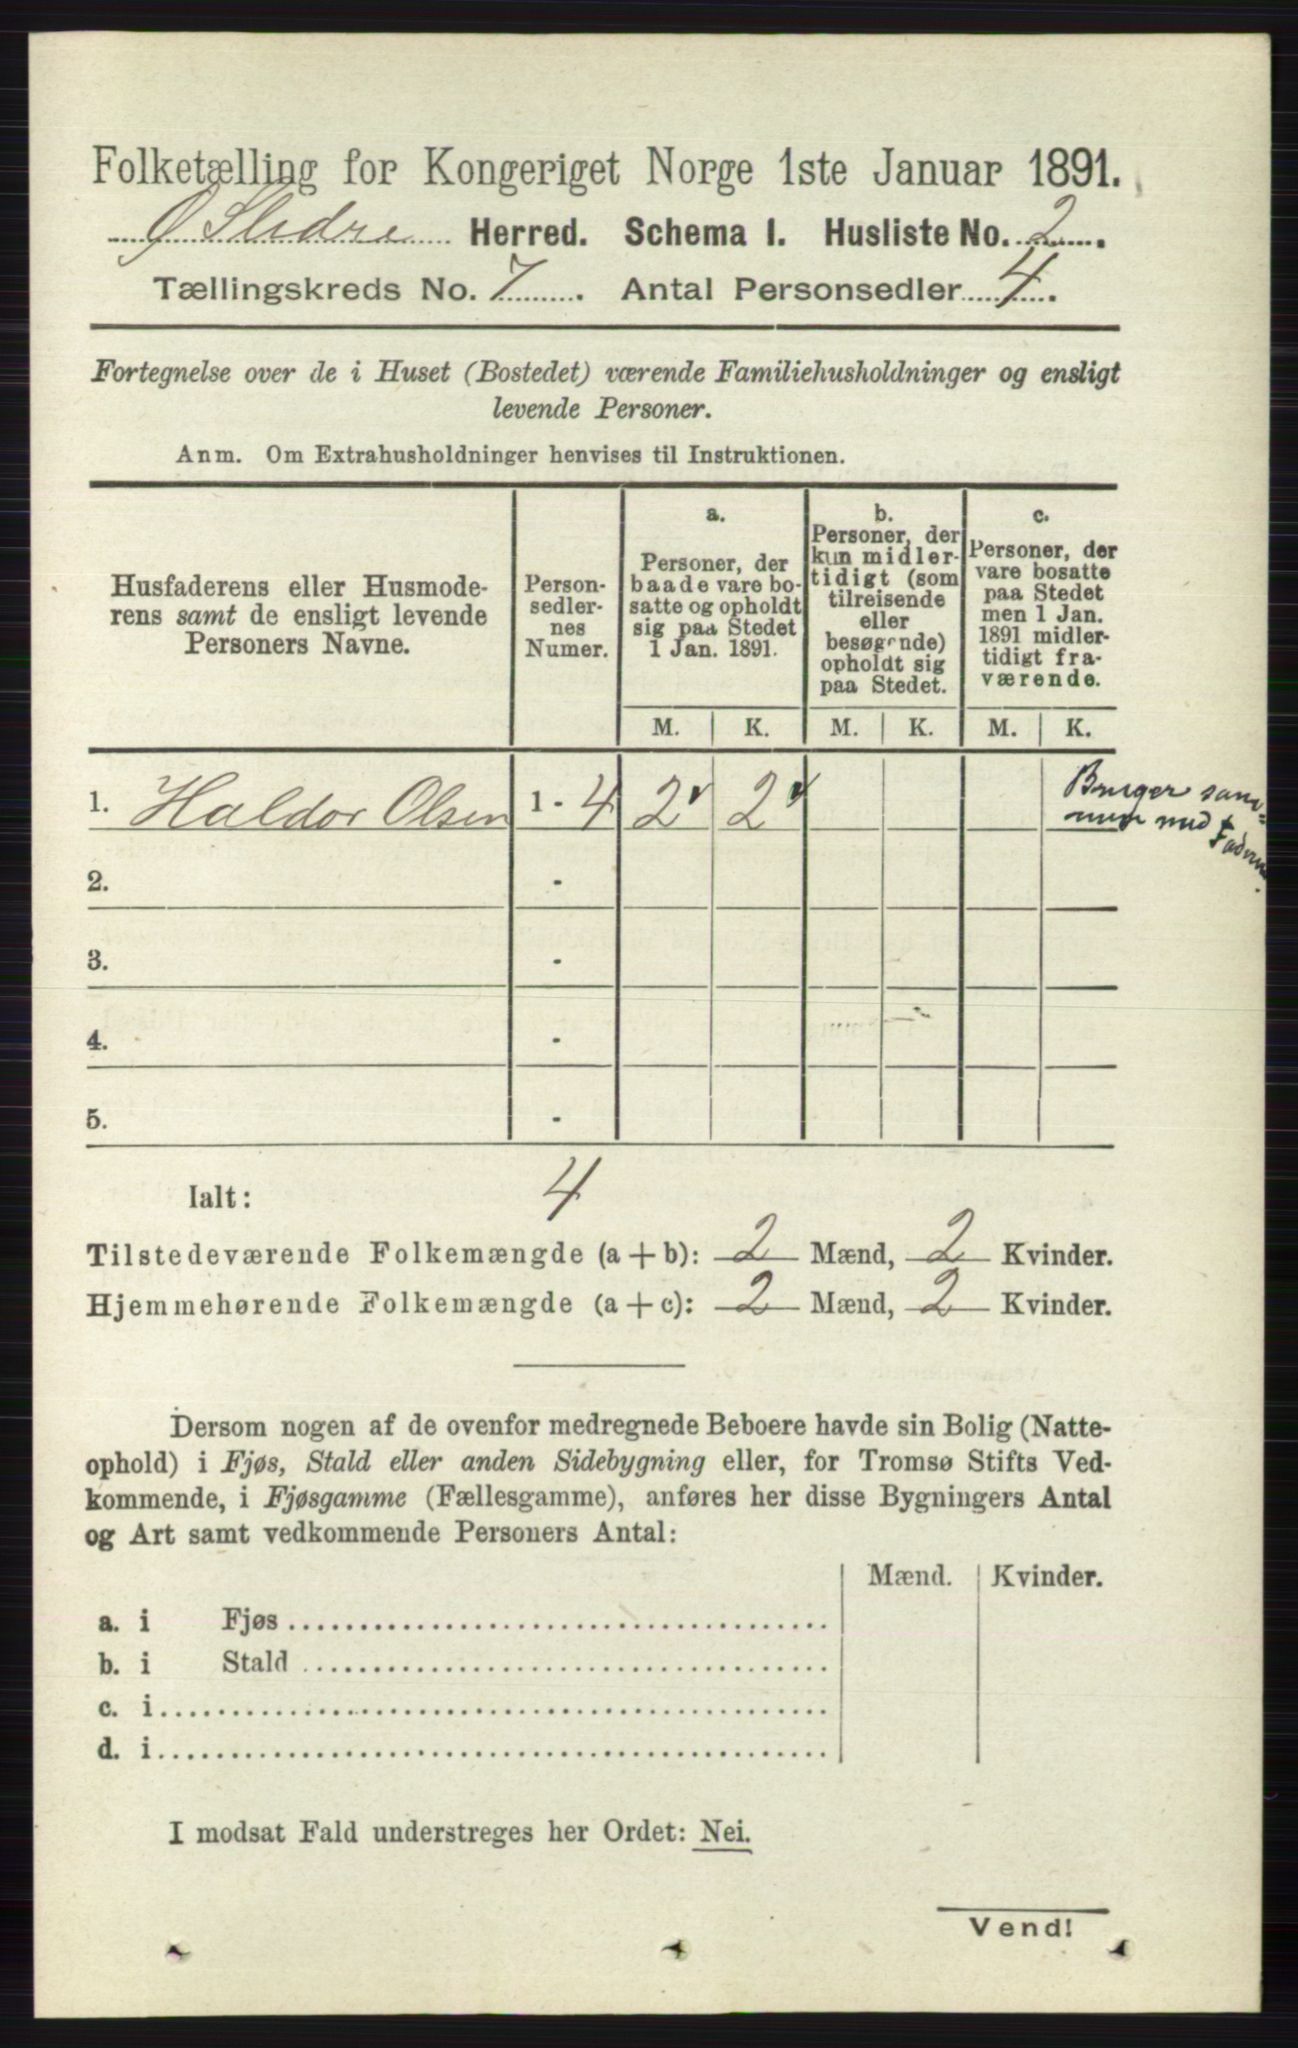 Folketælling for Kongeriget Norge 1ste Januar 1891.
Ø Slidre Herred. Schema I. Husliste No. 2.
Tællingskreds No. 7. Antal Personsedler 4.
Fortegnelse over de i Huset (Bostedet) værende Familiehusholdninger og ensligt
levende Personer.
Anm. Om Extrahusholdninger henvises til Instruktionen.
Husfaderens eller Husmode-
rens samt de ensligt levende
Personers Navne.
Person-
sedler-
nes
Numer.
a.
Personer, der
baade vare bo-
satte og opholdt
sig paa Stedet
1 Jan. 1891.
b.
Personer, der
kun midler-
tidigt (som
tilreisende
eller
besøgende)
opholdt sig
paa Stedet.
c.
Personer, der
vare bosatte
paa Stedet
men 1 Jan.
1891 midler-
tidigt fra-
værende.
M. K. M. K. M. K.
1. Haldor Olsen 1 - 4 2 2
Bruger sam=
men med
Faderen.
2. -
3. -
4. -
5. -
Ialt: 4
Tilstedeværende Folkemængde (a + b): 2 Mænd, 2 Kvinder.
Hjemmehørende Folkemængde (a + c): 2 Mænd, 2 Kvinder.
Dersom nogen af de ovenfor medregnede Beboere havde sin Bolig (Natte-
ophold) i Fjøs, Stald eller anden Sidebygning eller, for Tromsø Stifts Ved-
kommende, i Fjøsgamme (Fællesgamme), anføres her disse Bygningers Antal
og Art samt vedkommende Personers Antal:
Mænd. Kvinder.
a. i Fjøs
b. i Stald
c. i
d. i
I modsat Fald understreges her Ordet: Nei.
Vend!